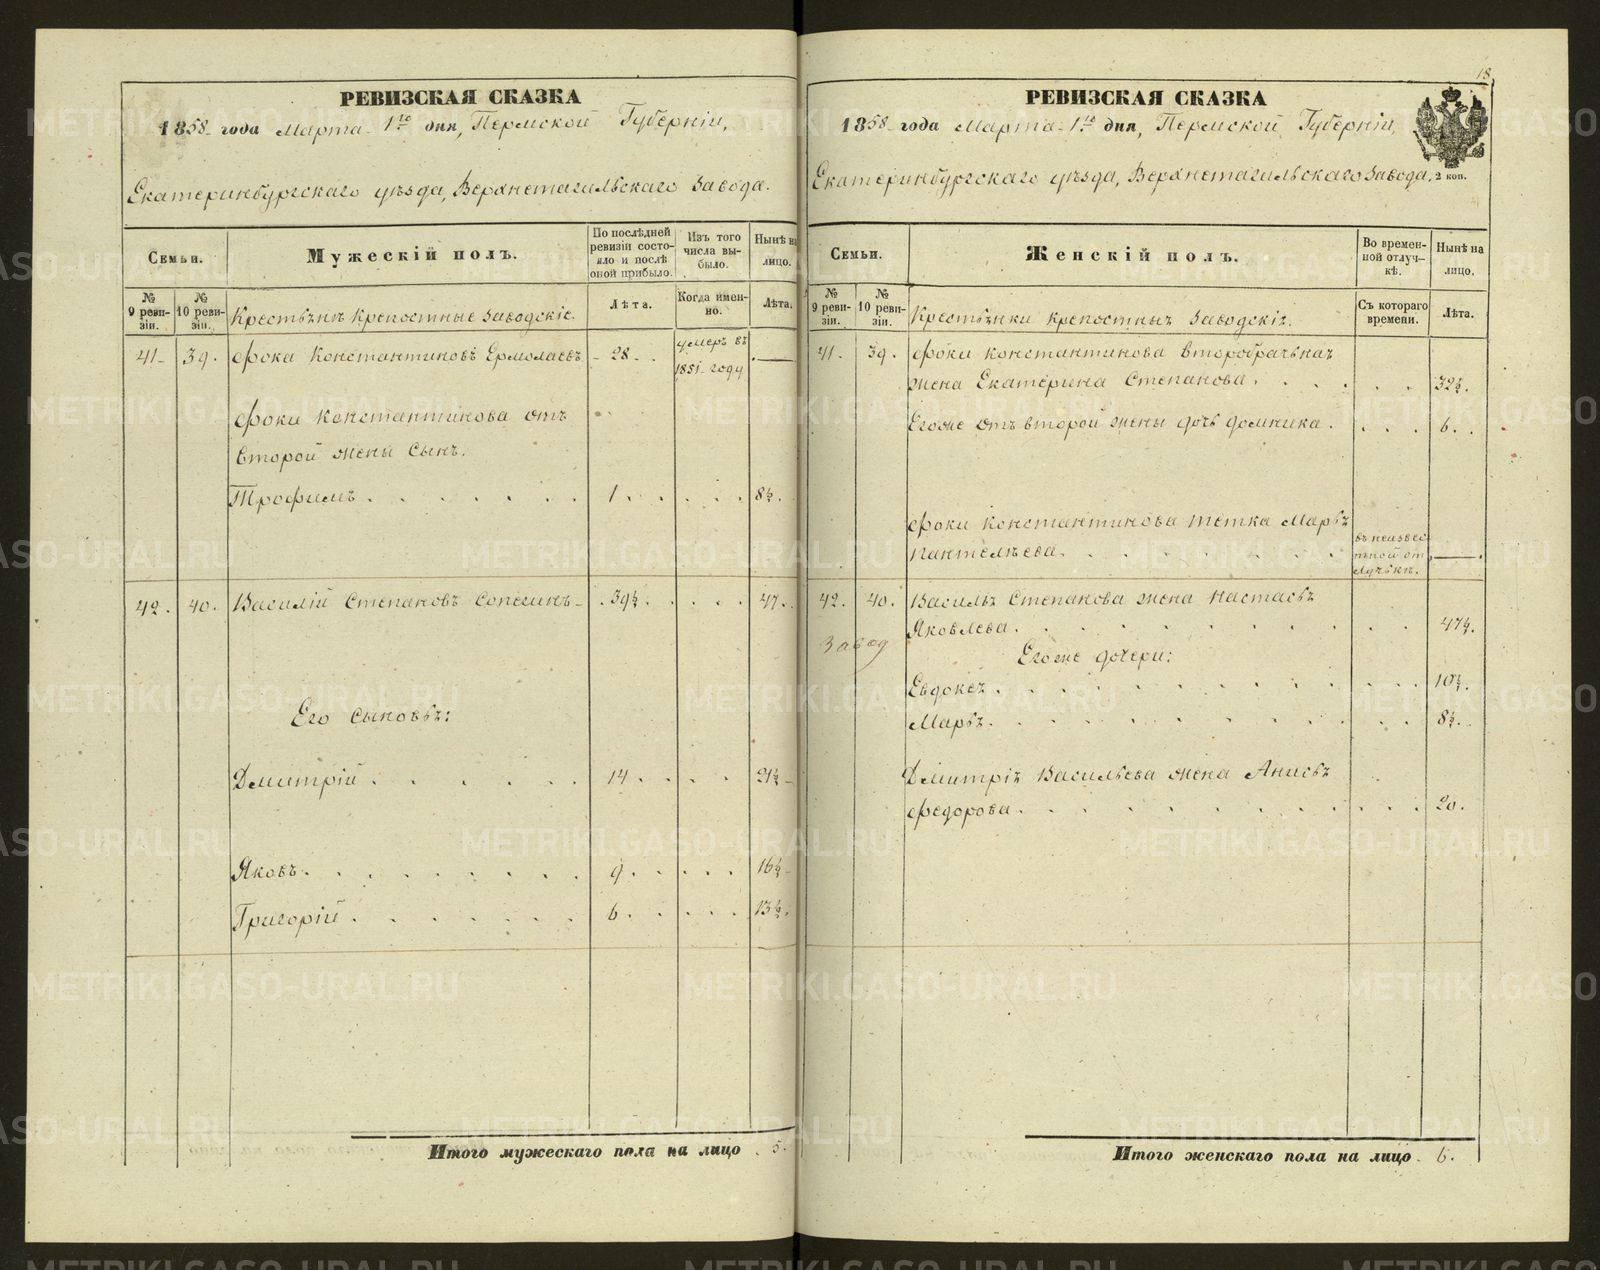 РЕВИЗСКАЯ СКАЗКА
1858 года Марта 1го дня, Пермской Губерніи,
Екатеринбургскаго уѣзда, Верхнетагильскаго Завода.
Семьи.
Мужескій полъ.
По послѣдней ревизіи состояло и послѣ оной прибыло.
Изъ того числа выбыло.
Нынѣ на лицо.
№ 9 ревизіи.
№ 10 ревизіи.
Крестьянѣ крѣпостные Заводскіе.
Лѣта.
Когда именно.
Лѣта.
41 39. Фока Константиновъ Ермолаевъ 28 умеръ въ 1851 году —
Фоки Константинова отъ
второй жены сынъ.
Трофимъ 1 8½.
42. 40. Василій Степановъ Сопегинъ 39½ 47.
Его сыновья:
Дмитрій 14 21½
Яковъ 9 16½
Григорій 6 13½.
Итого мужескаго пола на лицо 5.
18
РЕВИЗСКАЯ СКАЗКА
1858 года Марта 1го дня, Пермской Губерніи,
Екатеринбургскаго уѣзда, Верхнетагильскаго Завода.
2 коп.
Семьи.
Женскій полъ.
Во временной отлучкѣ.
Нынѣ на лицо.
№ 9 ревизіи.
№ 10 ревизіи.
Крестьянки крѣпостныя Заводскія.
Съ котораго времени.
Лѣта.
41. 39. Фоки Константинова второбрачьная
жена Екатерина Степанова 32½.
Егоже отъ второй жены дочь Домника 6.
Фоки Константинова тетка Марья
Пантелѣева въ неизвестьной отлучькѣ. —
42. 40. Василья Степанова жена Настасья
Завод
Яковлева 47½.
Егоже дочери:
Евдокея 10½.
Марья 8½.
Дмитрія Васильева жена Анисья
Федорова 20.
Итого женскаго пола на лицо 6.
METRIKI.GASO-URAL.RU